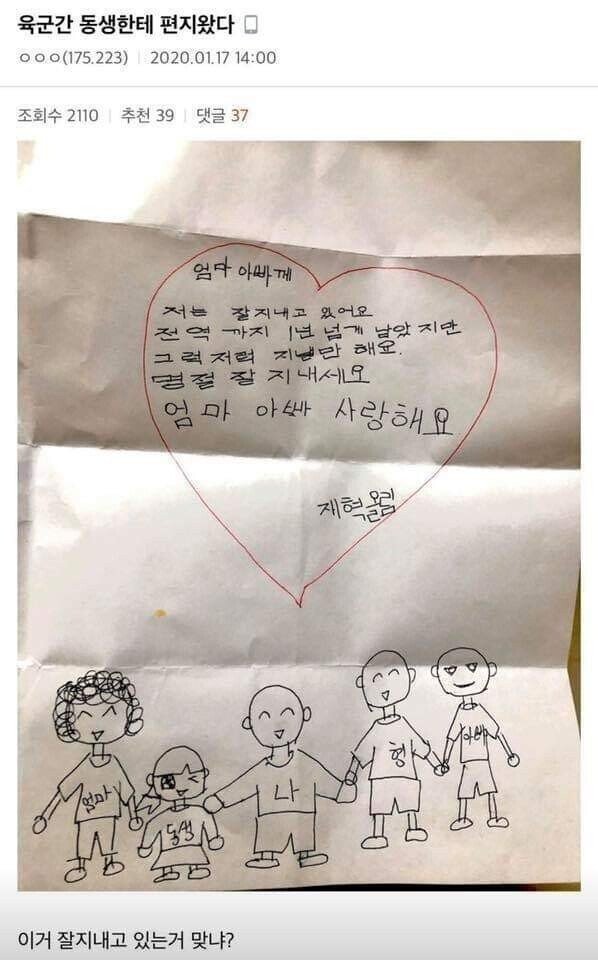 육군간 동생한테 편지왔다
ㅇㅇㅇ(175.223) 2020.01.17 14:00
조회수 2110 추천 39 댓글 37
엄마 아빠께
저는 잘지내고 있어요
전역 까지 1년 넘게 남았 지만
그럭 저럭 지낼만 해요.
명절 잘 지내세요
엄마 아빠 사랑해요
재혁올림
엄마
동생
나
형
아빠
이거 잘지내고 있는거 맞냐?